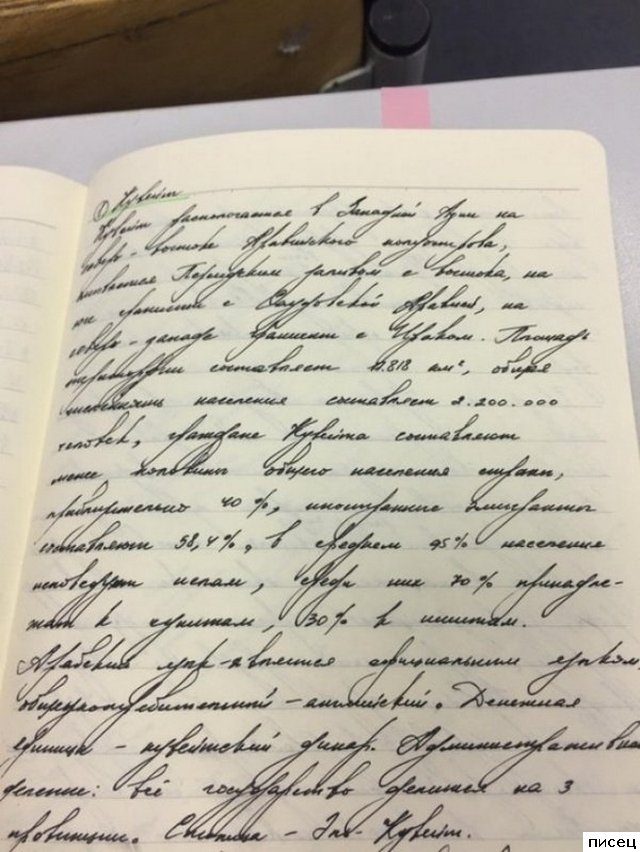 ① Кувейт
Кувейт расположился в Западной Азии на
северо-востоке Аравийского полуострова,
омывается Персидским заливом с востока, на
юге граничит с Саудовской Аравией, на
северо-западе граничит с Ираком. Площадь
территории составляет 17.818 км², общая
численность населения составляет 2.200.000
человек, граждане Кувейта составляют
менее половины общего населения страны,
приблизительно 40%, иностранные эмигранты
составляют 58,4%, в среднем 95% населения
исповедует ислам, среди них 70% принадле-
жат к суннитам, 30% к шиитам.
Арабский язык является официальным языком,
общеупотребительный - английский. Денежная
единица - кувейтский динар. Административное
деление: всё государство делится на 3
провинции. Столица - Эль-Кувейт.
писец